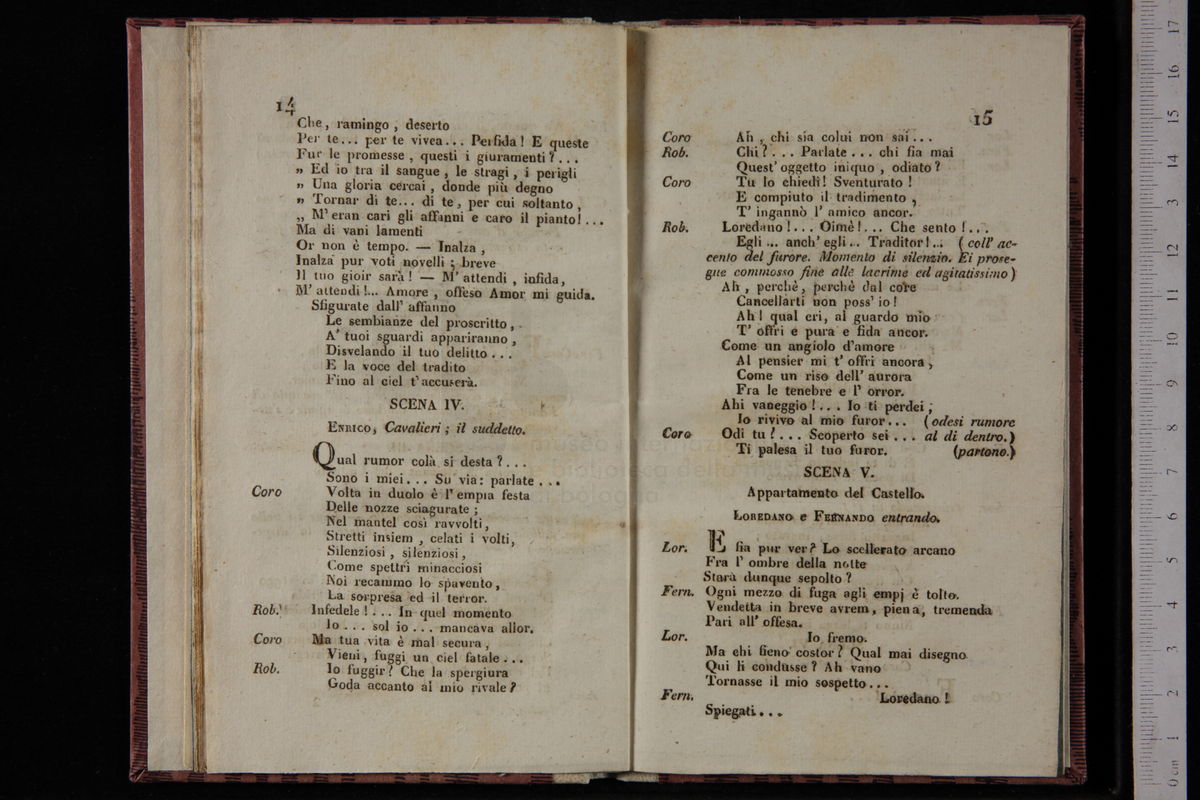 14
Che, ramingo, deserto
Per te... per te vivea... Perfida! E queste
Fur le promesse, questi i giuramenti?...
„ Ed io tra il sangue, le stragi, i perigli
„ Una gloria cercai, donde più degno
„ Tornar di te... di te, per cui soltanto,
„ M' eran cari gli affanni e caro il pianto!...
Ma di vani lamenti
Or non è tempo. — Inalza,
Inalza pur voti novelli; breve
Il tuo gioir sarà! — M' attendi, infida,
M' attendi!... Amore, offeso Amor mi guida.
Sfigurate dall' affanno
Le sembianze del proscritto,
A' tuoi sguardi appariranno,
Disvelando il tuo delitto...
E la voce del tradito
Fino al ciel t' accuserà.
SCENA IV.
ENRICO, Cavalieri; il suddetto.
Qual rumor colà si desta?...
Sono i miei... Su via: parlate...
Coro Volta in duolo è l' empia festa
Delle nozze sciagurate;
Nel mantel così ravvolti,
Stretti insiem, celati i volti,
Silenziosi, silenziosi,
Come spettri minacciosi
Noi recammo lo spavento,
La sorpresa ed il terror.
Rob. Infedele!... In quel momento
Io... sol io... mancava allor.
Coro Ma tua vita è mal secura,
Vieni, fuggi un ciel fatale...
Rob. Io fuggir? Che la spergiura
Goda accanto al mio rivale?
15
Coro Ah, chi sia colui non sai...
Rob. Chi?... Parlate... chi fia mai
Quest' oggetto iniquo, odiato?
Coro Tu lo chiedi! Sventurato!
E compiuto il tradimento,
T' ingannò l' amico ancor.
Rob. Loredano!... Oimè!... Che sento!...
Egli... anch' egli... Traditor!... (coll' ac-
cento del furore. Momento di silenzio. Ei prose-
gue commosso fine alle lacrime ed agitatissimo)
Ah, perchè, perchè dal core
Cancellarti non poss' io!
Ah! qual eri, al guardo mio
T' offri e pura e fida ancor.
Come un angiolo d'amore
Al pensier mi t' offri ancora,
Come un riso dell' aurora
Fra le tenebre e l' orror.
Ahi vaneggio!... Io ti perdei;
Io rivivo al mio furor... (odesi rumore
Coro Odi tu?... Scoperto sei... al di dentro.)
Ti palesa il tuo furor. (partono.)
SCENA V.
Appartamento del Castello.
LOREDANO e FERNANDO entrando.
Lor. E fia pur ver? Lo scellerato arcano
Fra l' ombre della notte
Starà dunque sepolto?
Fern. Ogni mezzo di fuga agli empj è tolto.
Vendetta in breve avrem, piena, tremenda
Pari all' offesa.
Lor. Io fremo.
Ma chi fieno costor? Qual mai disegno
Qui li condusse? Ah vano
Tornasse il mio sospetto...
Fern. Loredano!
Spiegati...